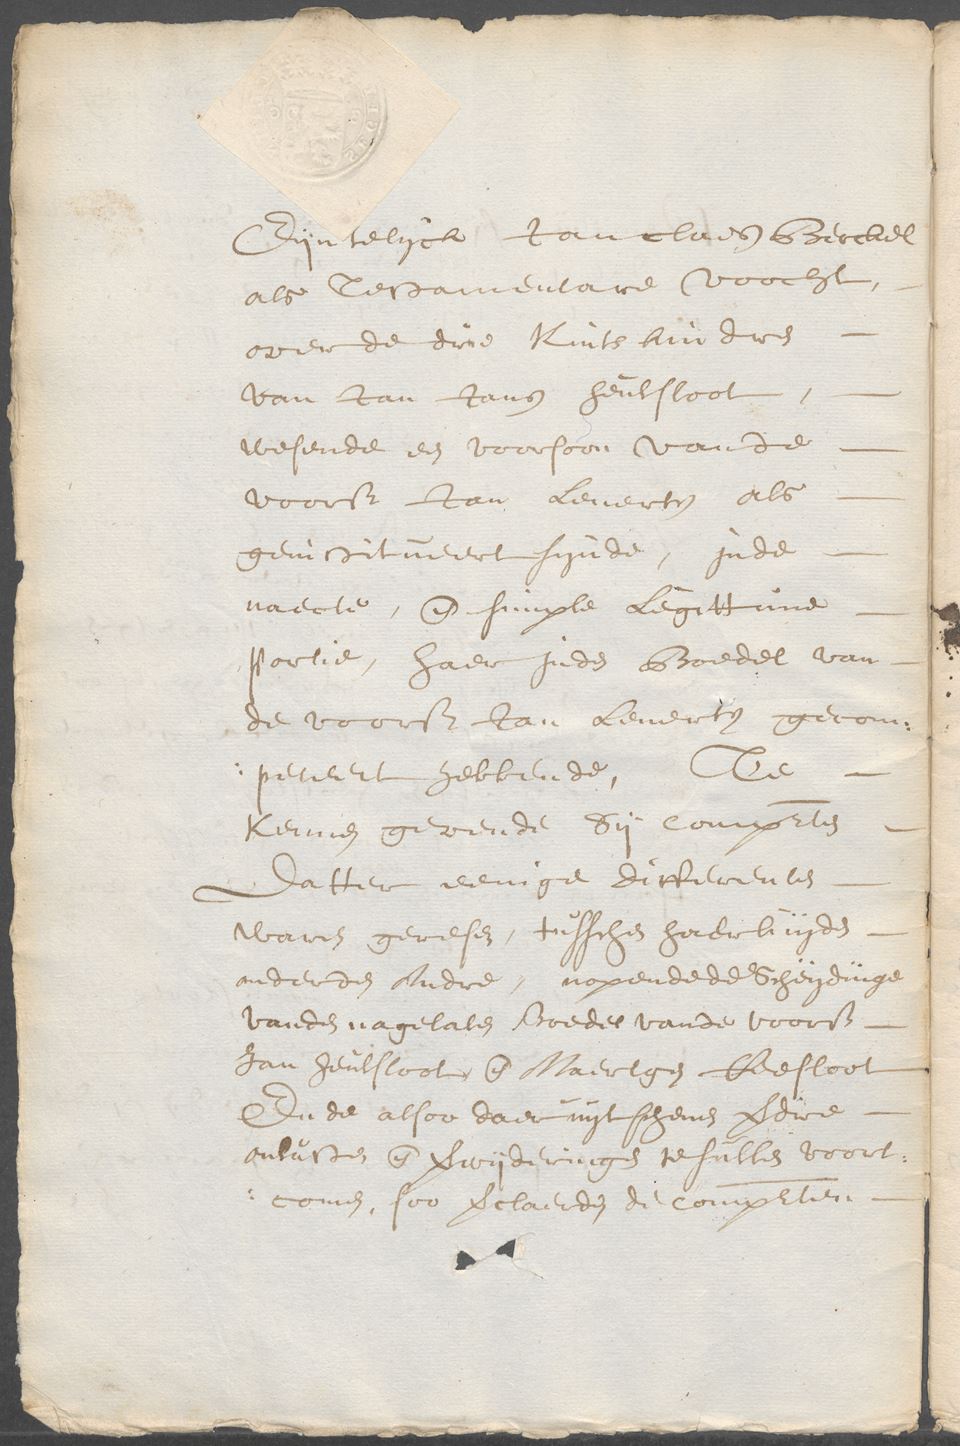 Eijntelijck Jan claes Berckel
als Testamentare voocht, -
over de drie Kints kindren -
van Jan Jans heulsloot, -
wesende een voorsoon vande -
voorsz Jan Lenerts als
geinstitueert sijnde, inde -
naecte, en simple Legittime -
Portie, haer inden Boedel van -
de voorsz Jan Lenerts gecom:
:peteert hebbende, Te -
Kennen gevende Sij comp.ten -
Datter eenige differenten -
waren geresen, tusschen haerluijden -
onder den Andre, nopende de Scheijdinge
vanden nagelaten Boedel vande voorsz -
Jan heulsloot en Maertgen Leesloot
Ende alsoo daer uijt schenen
onlusten en te sullen voort:
:comen, soo verclaerden de comp.ten -